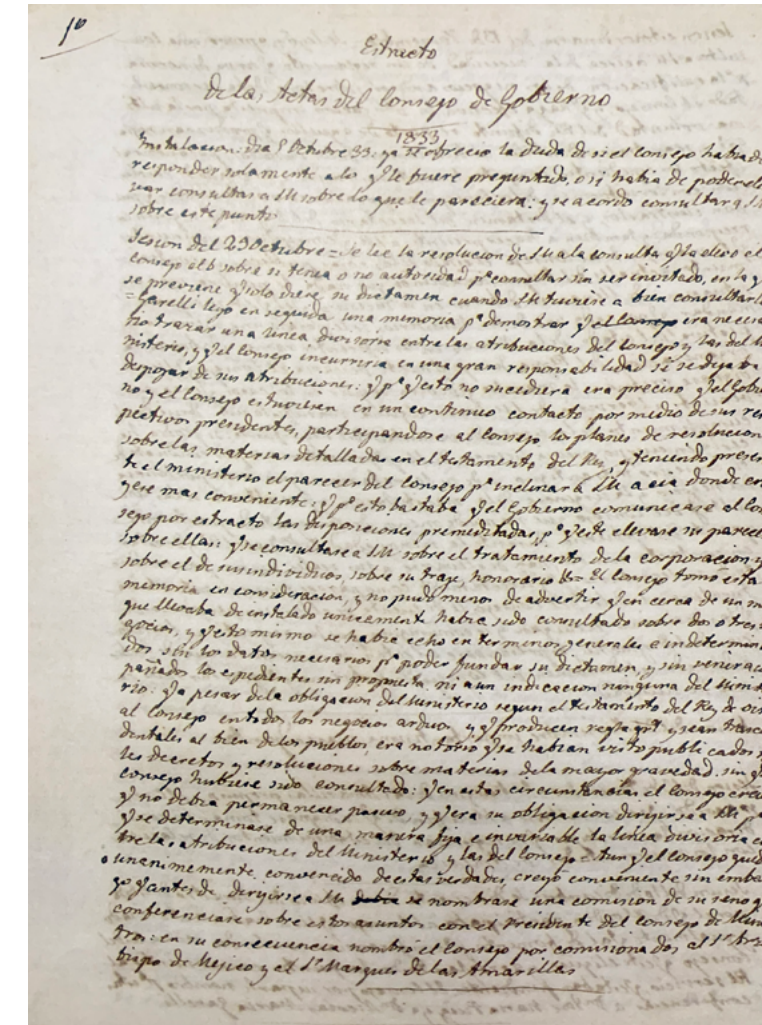 1º
Estracto
de las Actas del Consejo de Gobierno
1833
Instalacion: dia 5 Octubre 33: ya se ofrecio la duda de si el Consejo habia de
responder solamente a lo q.e le fuere preguntado, o si habia de poder ele
var consultas a SM sobre lo que le pareciera: y se acordo consultar a S.M
sobre este punto.
Sesion del 29 Octubre = Se lee la resolucion de SM a la consulta q.e la elevo el
Consejo el 6 sobre si tenia o no autoridad p.a consultar sin ser invitado, en la q
se previene q.e solo diere su dictamen cuando SM tuviese a bien consultarle
= Garelli leyo en seguida una memoria p.a demostrar q.e el Consejo era neces
rio trazar una linea divisoria entre las atribuciones del Consejo y las del Mi
nisterio, y q.e el Consejo incurriria en una gran responsabilidad si se dejaba
despojar de sus atribuciones: q.e p.a q.e esto no sucediera era preciso q.e el Gobier
no y el Consejo estuviesen en un continuo contacto por medio de sus res
pectivos presidentes, participandose al Consejo los planes de resolucion
sobre las materias detalladas en el testamento del Rey, y teniendo presen
te el ministerio el parecer del Consejo p.a inclinar a SM a cia donde cre
yese mas conveniente: q.e p.a esto bastaba q.e el Gobierno comunicase al Con
sejo por estracto las disposiciones premeditadas, p.a q.e este elevase su parecer
sobre ellas: q.e se consultase a SM sobre el tratamiento de la corporacion y
sobre el de sus individuos, sobre su traje, honorario &.a = El Consejo tomó esta
memoria en consideracion, y no pudo menos de advertir q.e en cerca de un m
que llevaba de instalado unicamente habia sido consultado sobre dos o tres ne
gocios, y q.e esto mismo se habia echo en terminos generales e indetermina
dos sin los datos necesarios p.a poder fundar su dictamen, y sin venir acom
pañados los espedientes sin propuesta ni aun indicacion ninguna del Ministe
rio: q.e a pesar de la obligacion del Ministerio segun el testamento del Rey de oir
al Consejo en todos los negocios arduos, y q.e producen regla gral y sean trascen
dentales al bien de los pueblos, era notorio q.e se habian visto publicados
les decretos y resoluciones sobre materias de la mayor gravedad, sin q.e
Consejo hubiese sido consultado: q.e en estas circunstancias el Consejo creia
q.e no debia permanecer pasivo, y q.e era su obligacion dirigirse a SM p.a
q.e se determinase de una manera fija e invariable la linea divisoria en
tre las atribuciones del Ministerio y las del Consejo. Aun q.e el Consejo quedó
unanimemente convencido de estas verdades, creyó conveniente sin embar
go q.e antes de dirigirse a SM debia se nombrase una comision de su seno q
conferenciase sobre estos asuntos con el Presidente del Consejo de Minis
tros: en su consecuencia nombró el Consejo por comisionados al S.r Arzo
bispo de Mejico y el S.r Marques de las Amarillas